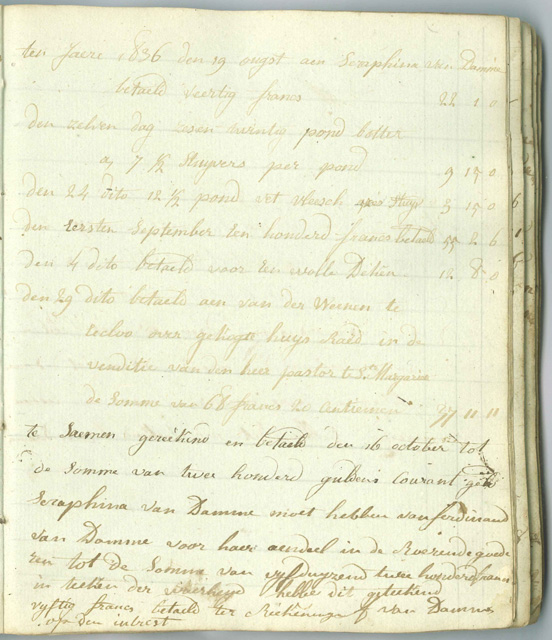 ten Jaere 1836 den 19 ougst aen Seraphina van Damme
betaeld veertig francs 22 1 0
den zelven dag zesen twintig pond botter
a 7 1/2 stuyvers per pond 9 15 0
den 24 dito 12 1/2 pond vet vleesch 3 15 0
den eersten September een honderd francs betaeld 55 2 6
den 4 dito betaeld voor een wolle Deken 12 8 0
den 29 dito betaeld aen van der Weenen te
eecloo over gekogte huys Raed in de
venditie van den heer pastor te Ste Margriete
de Somme van 68 francs 20 Centiemen 37 11 11
te Saemen gereekend en betaeld den 16 october tot
de Somme van twee honderd guldens courant geld
Seraphina van Damme moet hebben van ferdinand
van Damme voor haer aendeel in de Roerende goede
ren tot de Somme van vyfduyzend twee honderd francs
in teeken der waerheyd hebbe dit geteekend
vyftig francs betaeld ter Reekeninge f van Damme
op den intrest